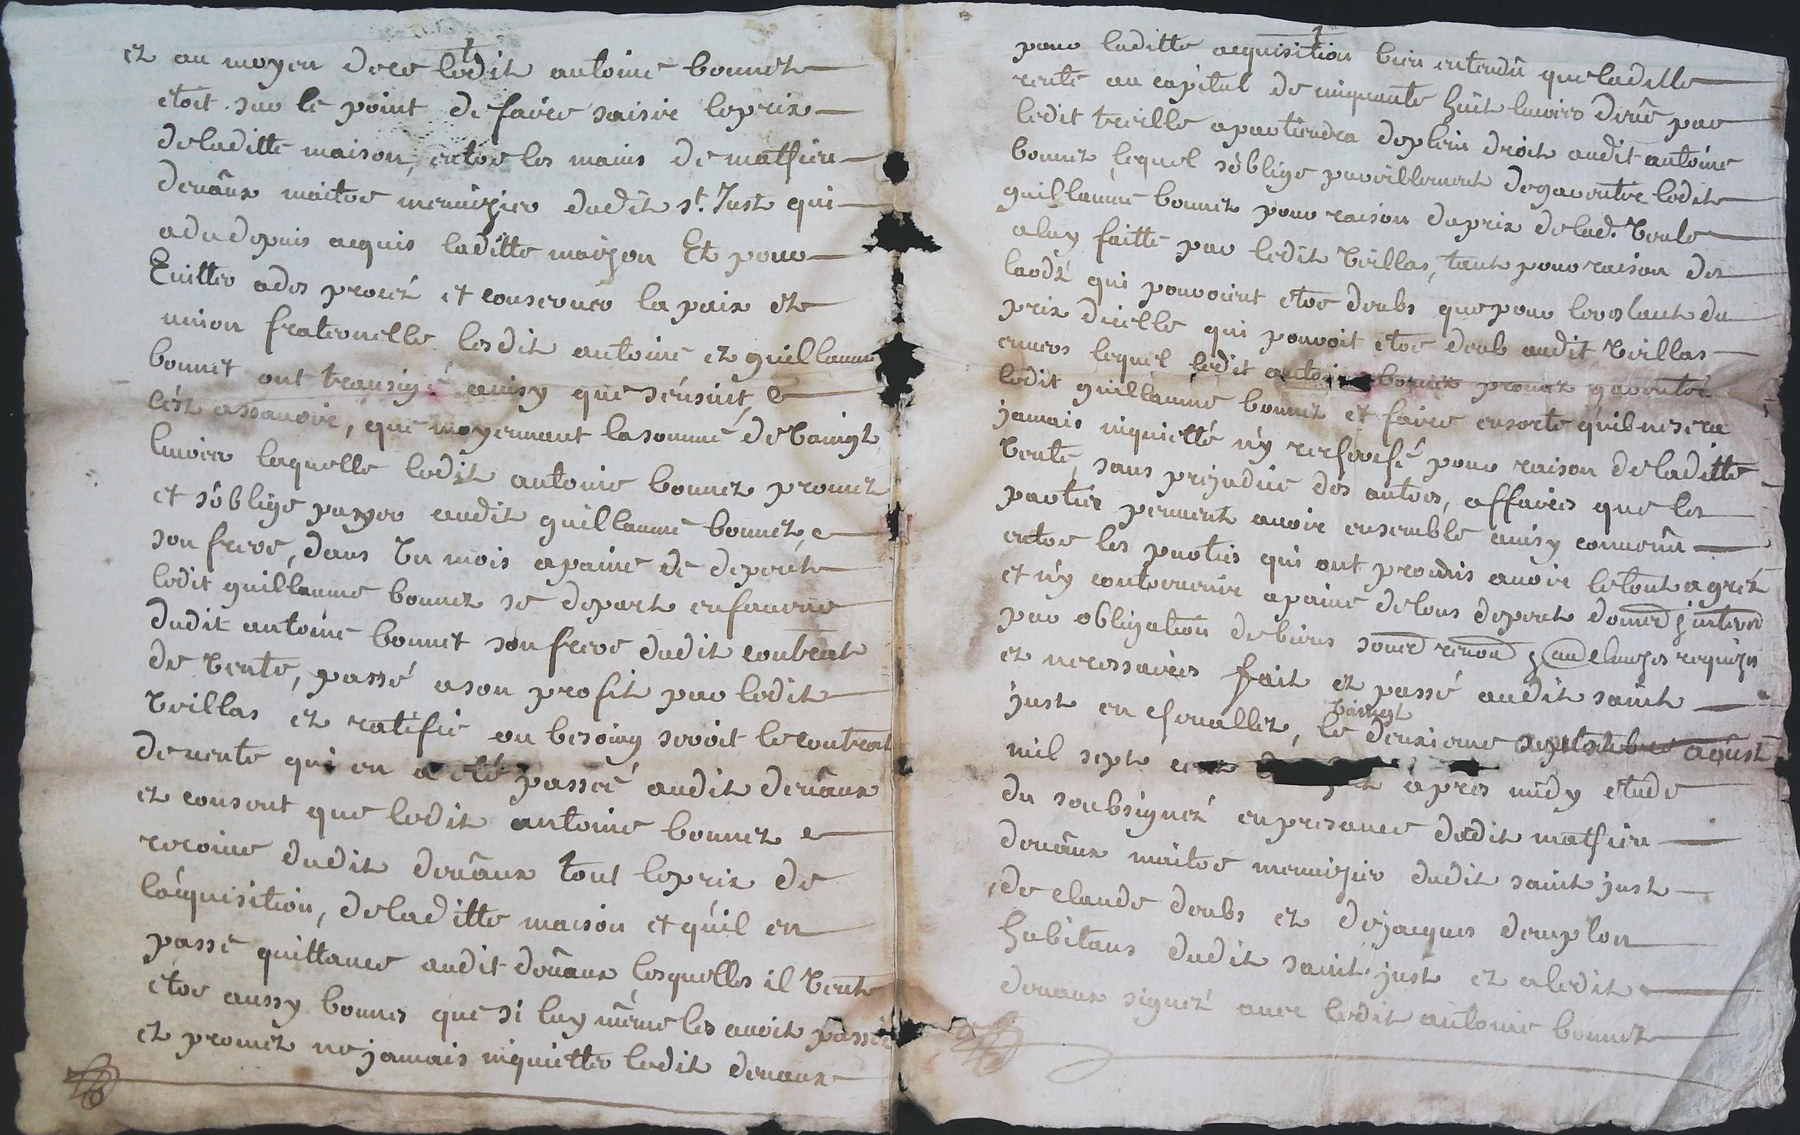 et au moyen de ce ledit antoine bonnet
etoit sur le point de faire saisir le prix
de laditte maison, entre les mains de mathieu
devaux maitre menuizier dudit st. Just qui
a du depuis acquis laditte maizon Et pour
Euitter a des procez et conseruer la paix et
union fraternelle lesdit antoine et guillaume
bonnet ont transigé ainsy que sensuit
c'est assauoir, que moyennant la somme de vaingt
liures laquelle ledit antoine bonnet promet
et s'oblige payer audit guillaume bonnet
son frere, dans un mois a paine de depent
ledit guillaume bonnet se depart en faueur
dudit antoine bonnet son frere dudit contrat
de vente, passé a son profit par ledit
Veillas et ratifie en besoing seroit le contrat
de vente qui en a eté passeé audit devaux
et consent que ledit antoine bonnet
recoive dudit devaux tout le prix de
l'acquisition, de laditte maison et quil en
passe quittance audit devaux, lesquelles il veut
etre aussy bonnes que si luy même les auoit passé
et promet ne jamais inquietter ledit devaux
pour laditte acquisition bien entendu que laditte
rente au capital de cinquante huit liures deue par
ledit treille apartiendra de plein droit audit antoine
bonnet, lequel s'oblige pareillement de garentir ledit
guillaume bonnet pour raison du prix de lad. vente
a luy faitte par ledit Veillas, tant pour raison des
laodz qui pouvoient etre deubs que pour le restant du
prix d'icelle qui pouvoit etre deub audit Veillas
envers lequel ledit antoine bonnet promet garentir
ledit guillaume bonnet et faire ensorte qu'il ne sera
jamais inquietté n'y recherché pour raison de laditte
vente, sans prejudice des autres affaires que les
parties peuvent auoir ensemble ainsy convenu
entre les parties qui ont promis auoir le tout agréz
et n'y contrevenir a paine de tous depent
par obligation de biens clauzes requizes
et necessaires fait et passé audit saint
just en chevallet, le vaingt deuxieme septembre août
mil sept cent apres midy etude
du soubsignez en presance dudit mathieu
devaux maitre menuizier dudit saint just
de claude doubs et de jacques demplon
habitans dudit saint just et a ledit
devaux signez avec ledit antoine bonnet